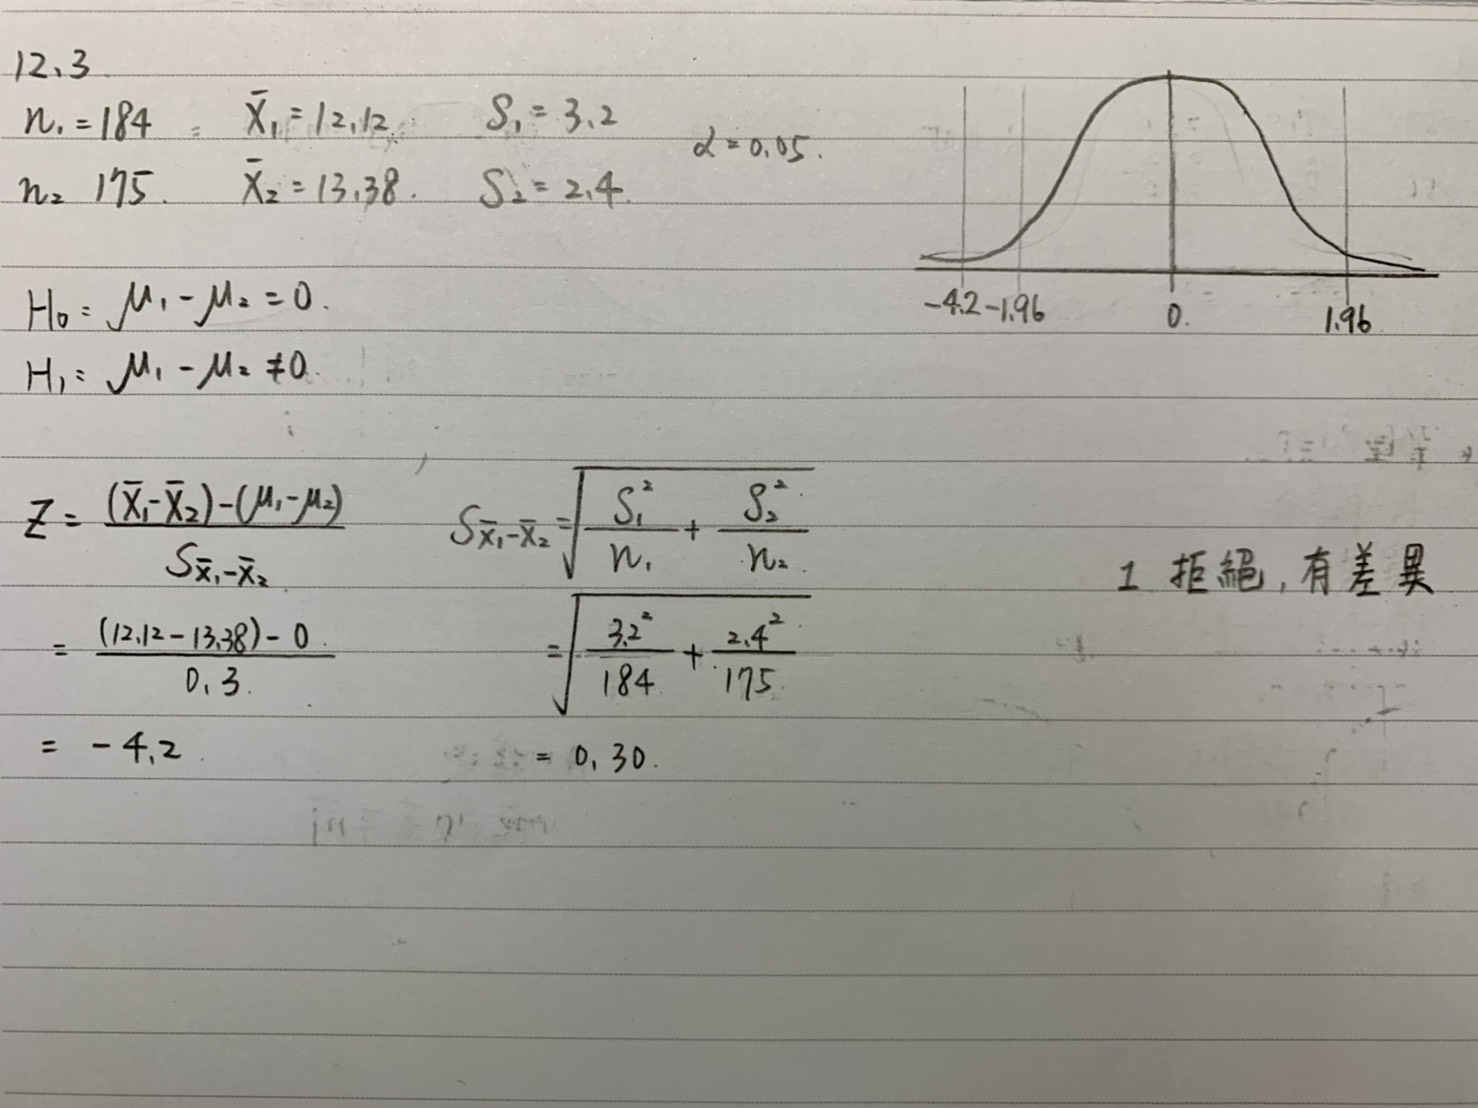 12.3
n₁ = 184  X̄₁ = 12.12  S₁ = 3.2
n₂ 175.  X̄₂ = 13.38.  S₂ = 2.4.
α = 0.05.
-4.2 -1.96  0.  1.96
H₀ = μ₁ - μ₂ = 0.
H₁ = μ₁ - μ₂ ≠ 0.
Z = ((X̄₁ - X̄₂) - (μ₁ - μ₂)) / S_X̄₁-X̄₂  S_X̄₁-X̄₂ = √(S₁²/n₁ + S₂²/n₂)
= ((12.12 - 13.38) - 0) / 0.3  = √(3.2²/184 + 2.4²/175)
= -4.2  = 0.30.
1 拒絕,有差異